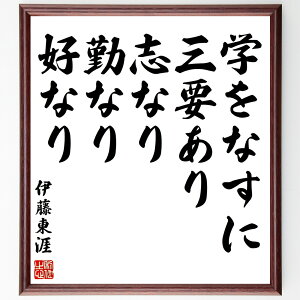 学をなすに
三要あり
志なり
勤なり
好なり
伊藤東涯